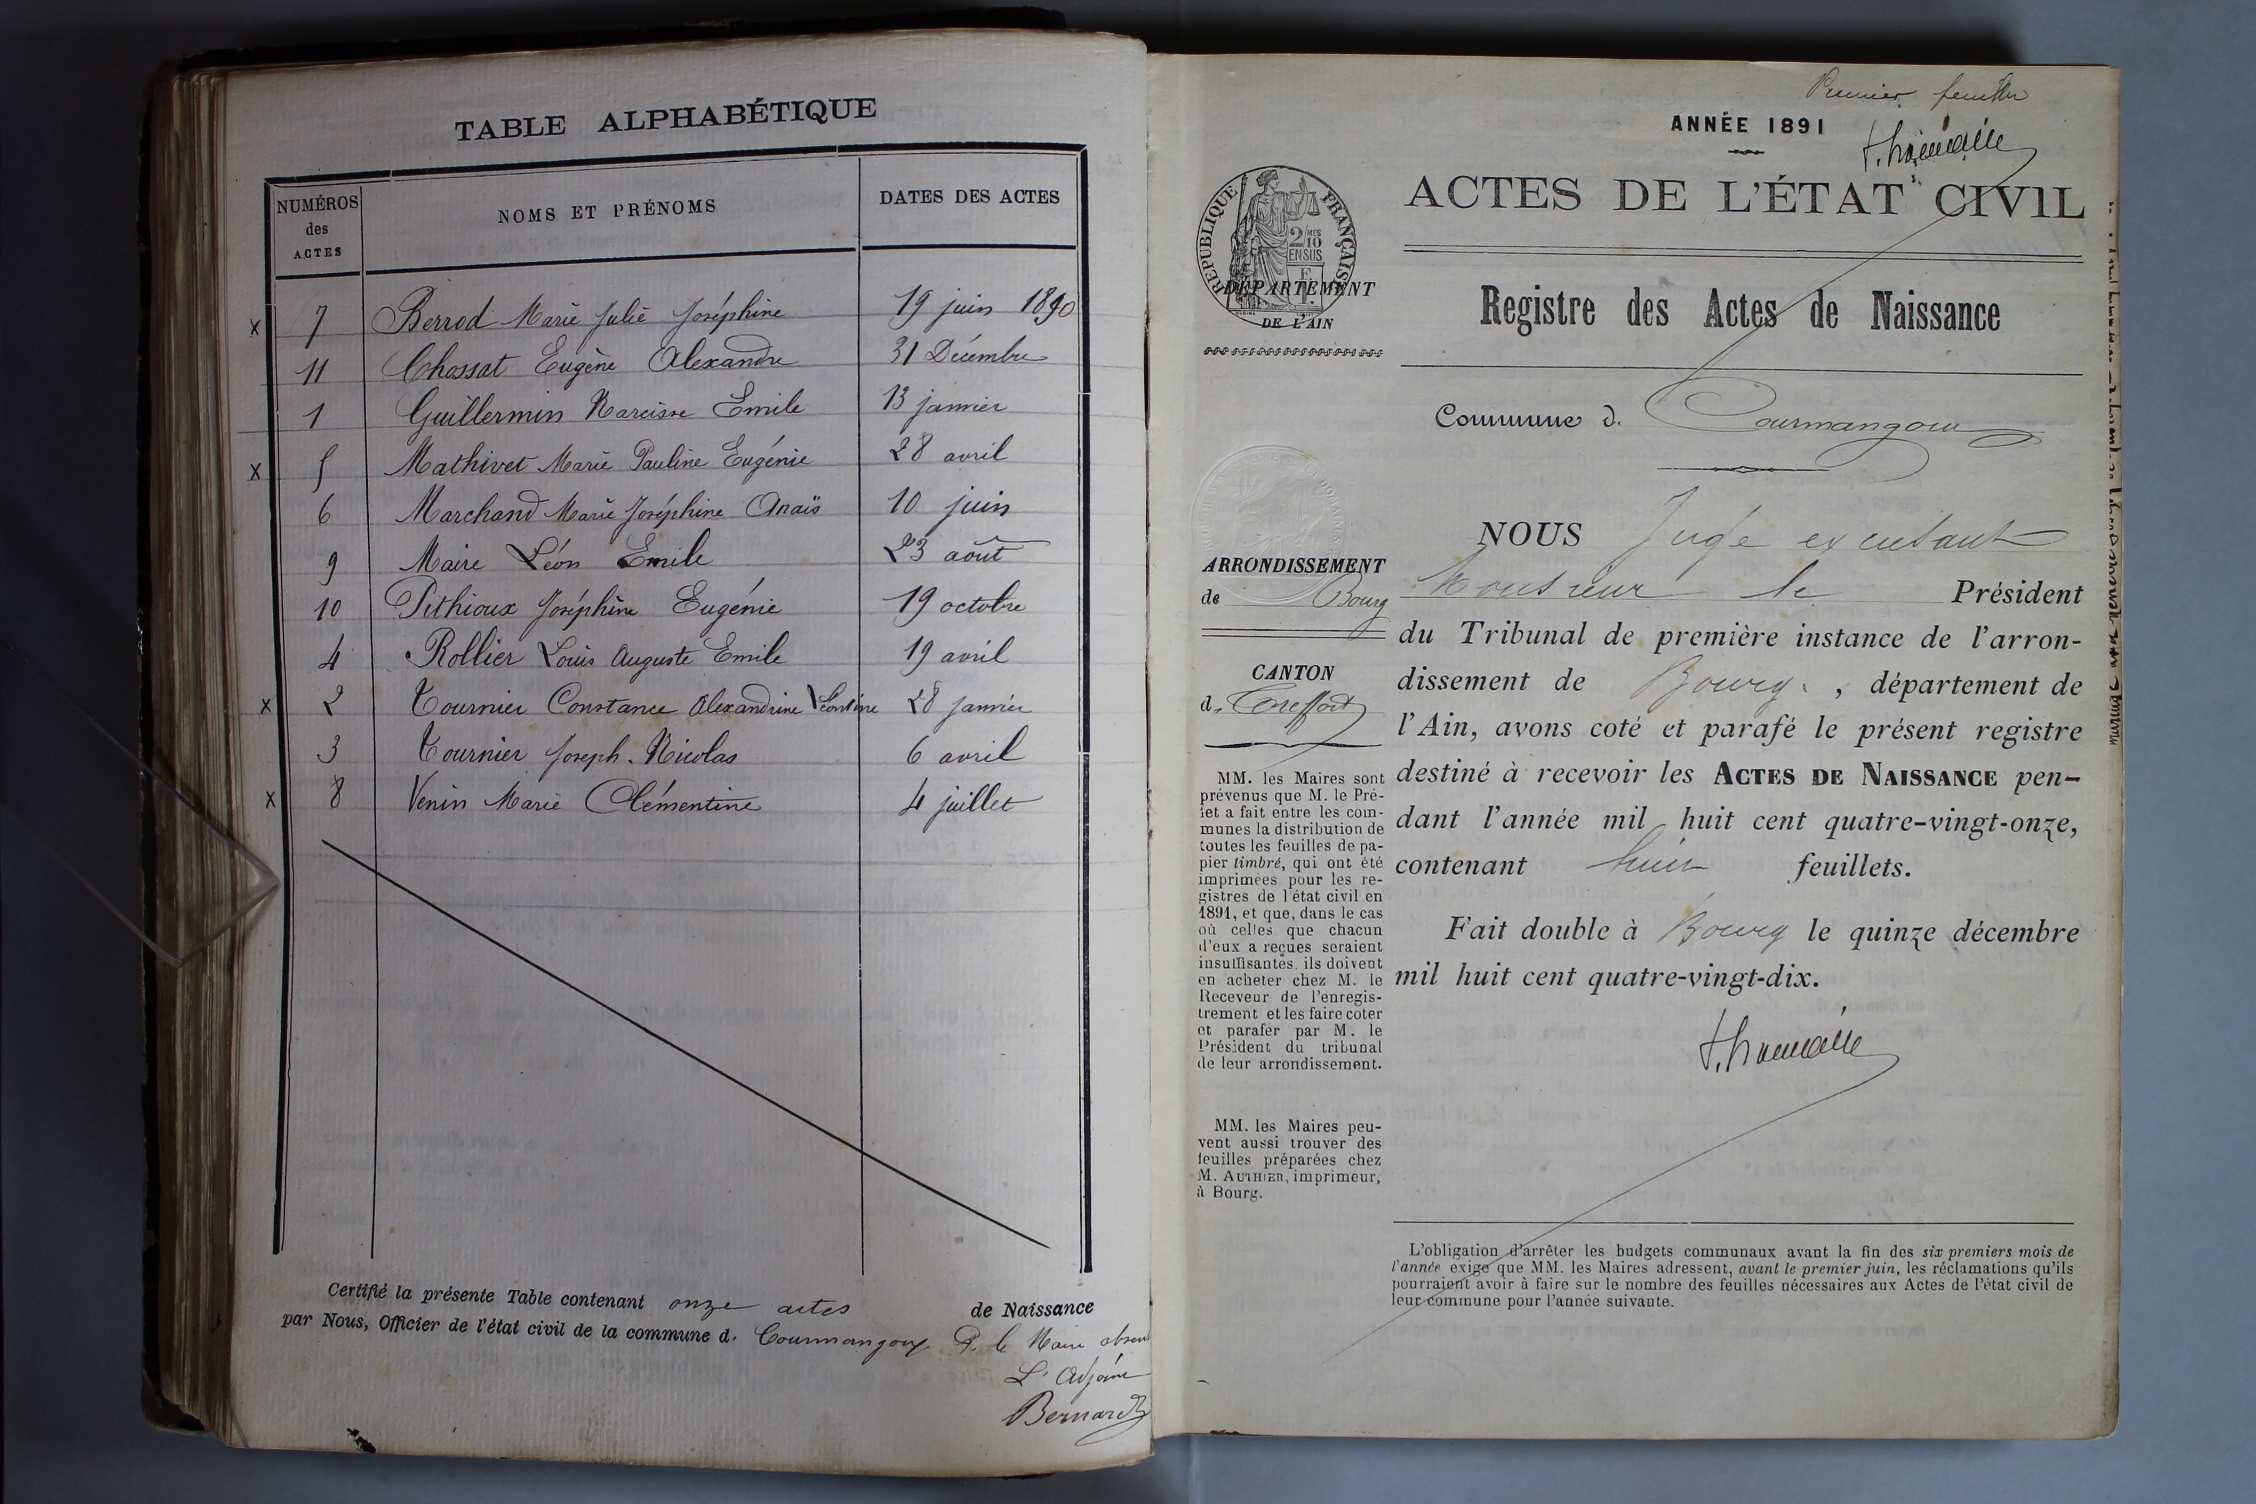 TABLE ALPHABÉTIQUE
NUMÉROS des ACTES
NOMS ET PRÉNOMS
DATES DES ACTES
x 7 Berrod Marie Julie Joséphine 19 juin 1890
11 Chossat Eugène Alexandre 31 Décembre
1 Guillermin Narcisse Emile 13 janvier
x 5 Mathivet Marie Pauline Eugénie 28 avril
6 Marchand Marie Joséphine Anaïs 10 juin
9 Maire Léon Emile 23 août
10 Pithioux Joséphine Eugénie 19 octobre
4 Rollier Louis Auguste Emile 19 avril
x 2 Tournier Constance Alexandrine Léontine 28 janvier
3 Tournier Joseph Nicolas 6 avril
x 8 Venin Marie Clémentine 4 juillet
Certifié la présente Table contenant onze actes de Naissance
par Nous, Officier de l'état civil de la commune d. Courmangoux P. le Maire absent
L'Adjoint
Bernard
Premier feuillet
ANNÉE 1891
ACTES DE L'ÉTAT CIVIL
RÉPUBLIQUE FRANÇAISE
2 MES
10
EN SUS
DÉPARTEMENT
DE L'AIN
Registre des Actes de Naissance
Commune d. Courmangoux
ARRONDISSEMENT
de Bourg
CANTON
d. Treffort
MM. les Maires sont
prévenus que M. le Pré-
fet a fait entre les com-
munes la distribution de
toutes les feuilles de pa-
pier timbré, qui ont été
imprimées pour les re-
gistres de l'état civil en
1891, et que, dans le cas
où celles que chacun
d'eux a reçues seraient
insuffisantes, ils doivent
en acheter chez M. le
Receveur de l'enregis-
trement et les faire coter
et parafer par M. le
Président du tribunal
de leur arrondissement.
MM. les Maires peu-
vent aussi trouver des
feuilles préparées chez
M. AUTHIER, imprimeur,
à Bourg.
NOUS Juge excusant
Monsieur le Président
du Tribunal de première instance de l'arron-
dissement de Bourg, département de
l'Ain, avons coté et parafé le présent registre
destiné à recevoir les ACTES DE NAISSANCE pen-
dant l'année mil huit cent quatre-vingt-onze,
contenant huit feuillets.
Fait double à Bourg le quinze décembre
mil huit cent quatre-vingt-dix.
L'obligation d'arrêter les budgets communaux avant la fin des six premiers mois de
l'année exige que MM. les Maires adressent, avant le premier juin, les réclamations qu'ils
pourraient avoir à faire sur le nombre des feuilles nécessaires aux Actes de l'état civil de
leur commune pour l'année suivante.